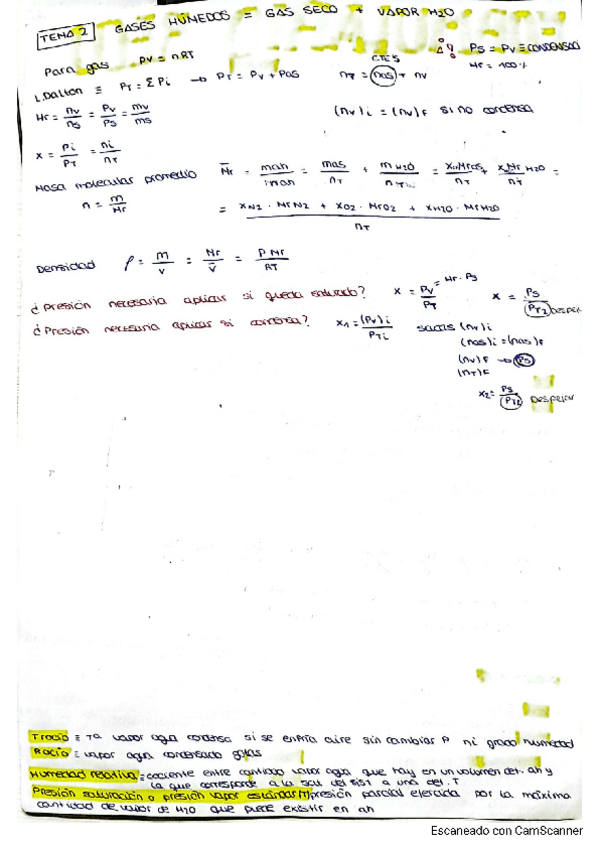 TEMA 2 GASES HÚMEDOS = GAS SECO + VAPOR H2O
Ps = Pv ≡ CONDENSADO
Hr = 100 %
Para gas PV = nRT
L. Dalton ≡ PT = ΣPi → PT = Pv + Pas
CTES
nT = nas + nv
Hr = nv/ns = Pv/Ps = mv/ms
(nv)i = (nv)F si no condensa
x = Pi/PT = ni/nT
Masa molecular promedio
n = m/Mr
= xN2 · MrN2 + xO2 · MrO2 + xH2O · MrH2O / nT
Densidad ρ = m/V = Mr/V̄ = P Mr/RT
¿Presión necesaria aplicar si queda saturado? x = Pv/PT = Hr · Ps x = Ps/PT2 Despejar
¿Presión necesaria aplicar si condensa? x1 = (Pv)i/PTi sacas (nv)i
(nas)i = (nas)F
(nv)F → Ps
(nT)F
x2 = Ps/PT2 Despejar
Trocío ≡ Tª vapor agua condensa si se enfría aire sin cambiar P ni grado humedad
Rocío ≡ vapor agua condensado gotas
Humedad relativa ≡ cociente entre cantidad vapor agua que hay en un volumen det. ah y
la que corresponde a la sat. del sist a una det. T
Presión saturación o presión vapor estándar (T) presión parcial ejercida por la máxima
cantidad de vapor de H2O que puede existir en ah
Escaneado con CamScanner